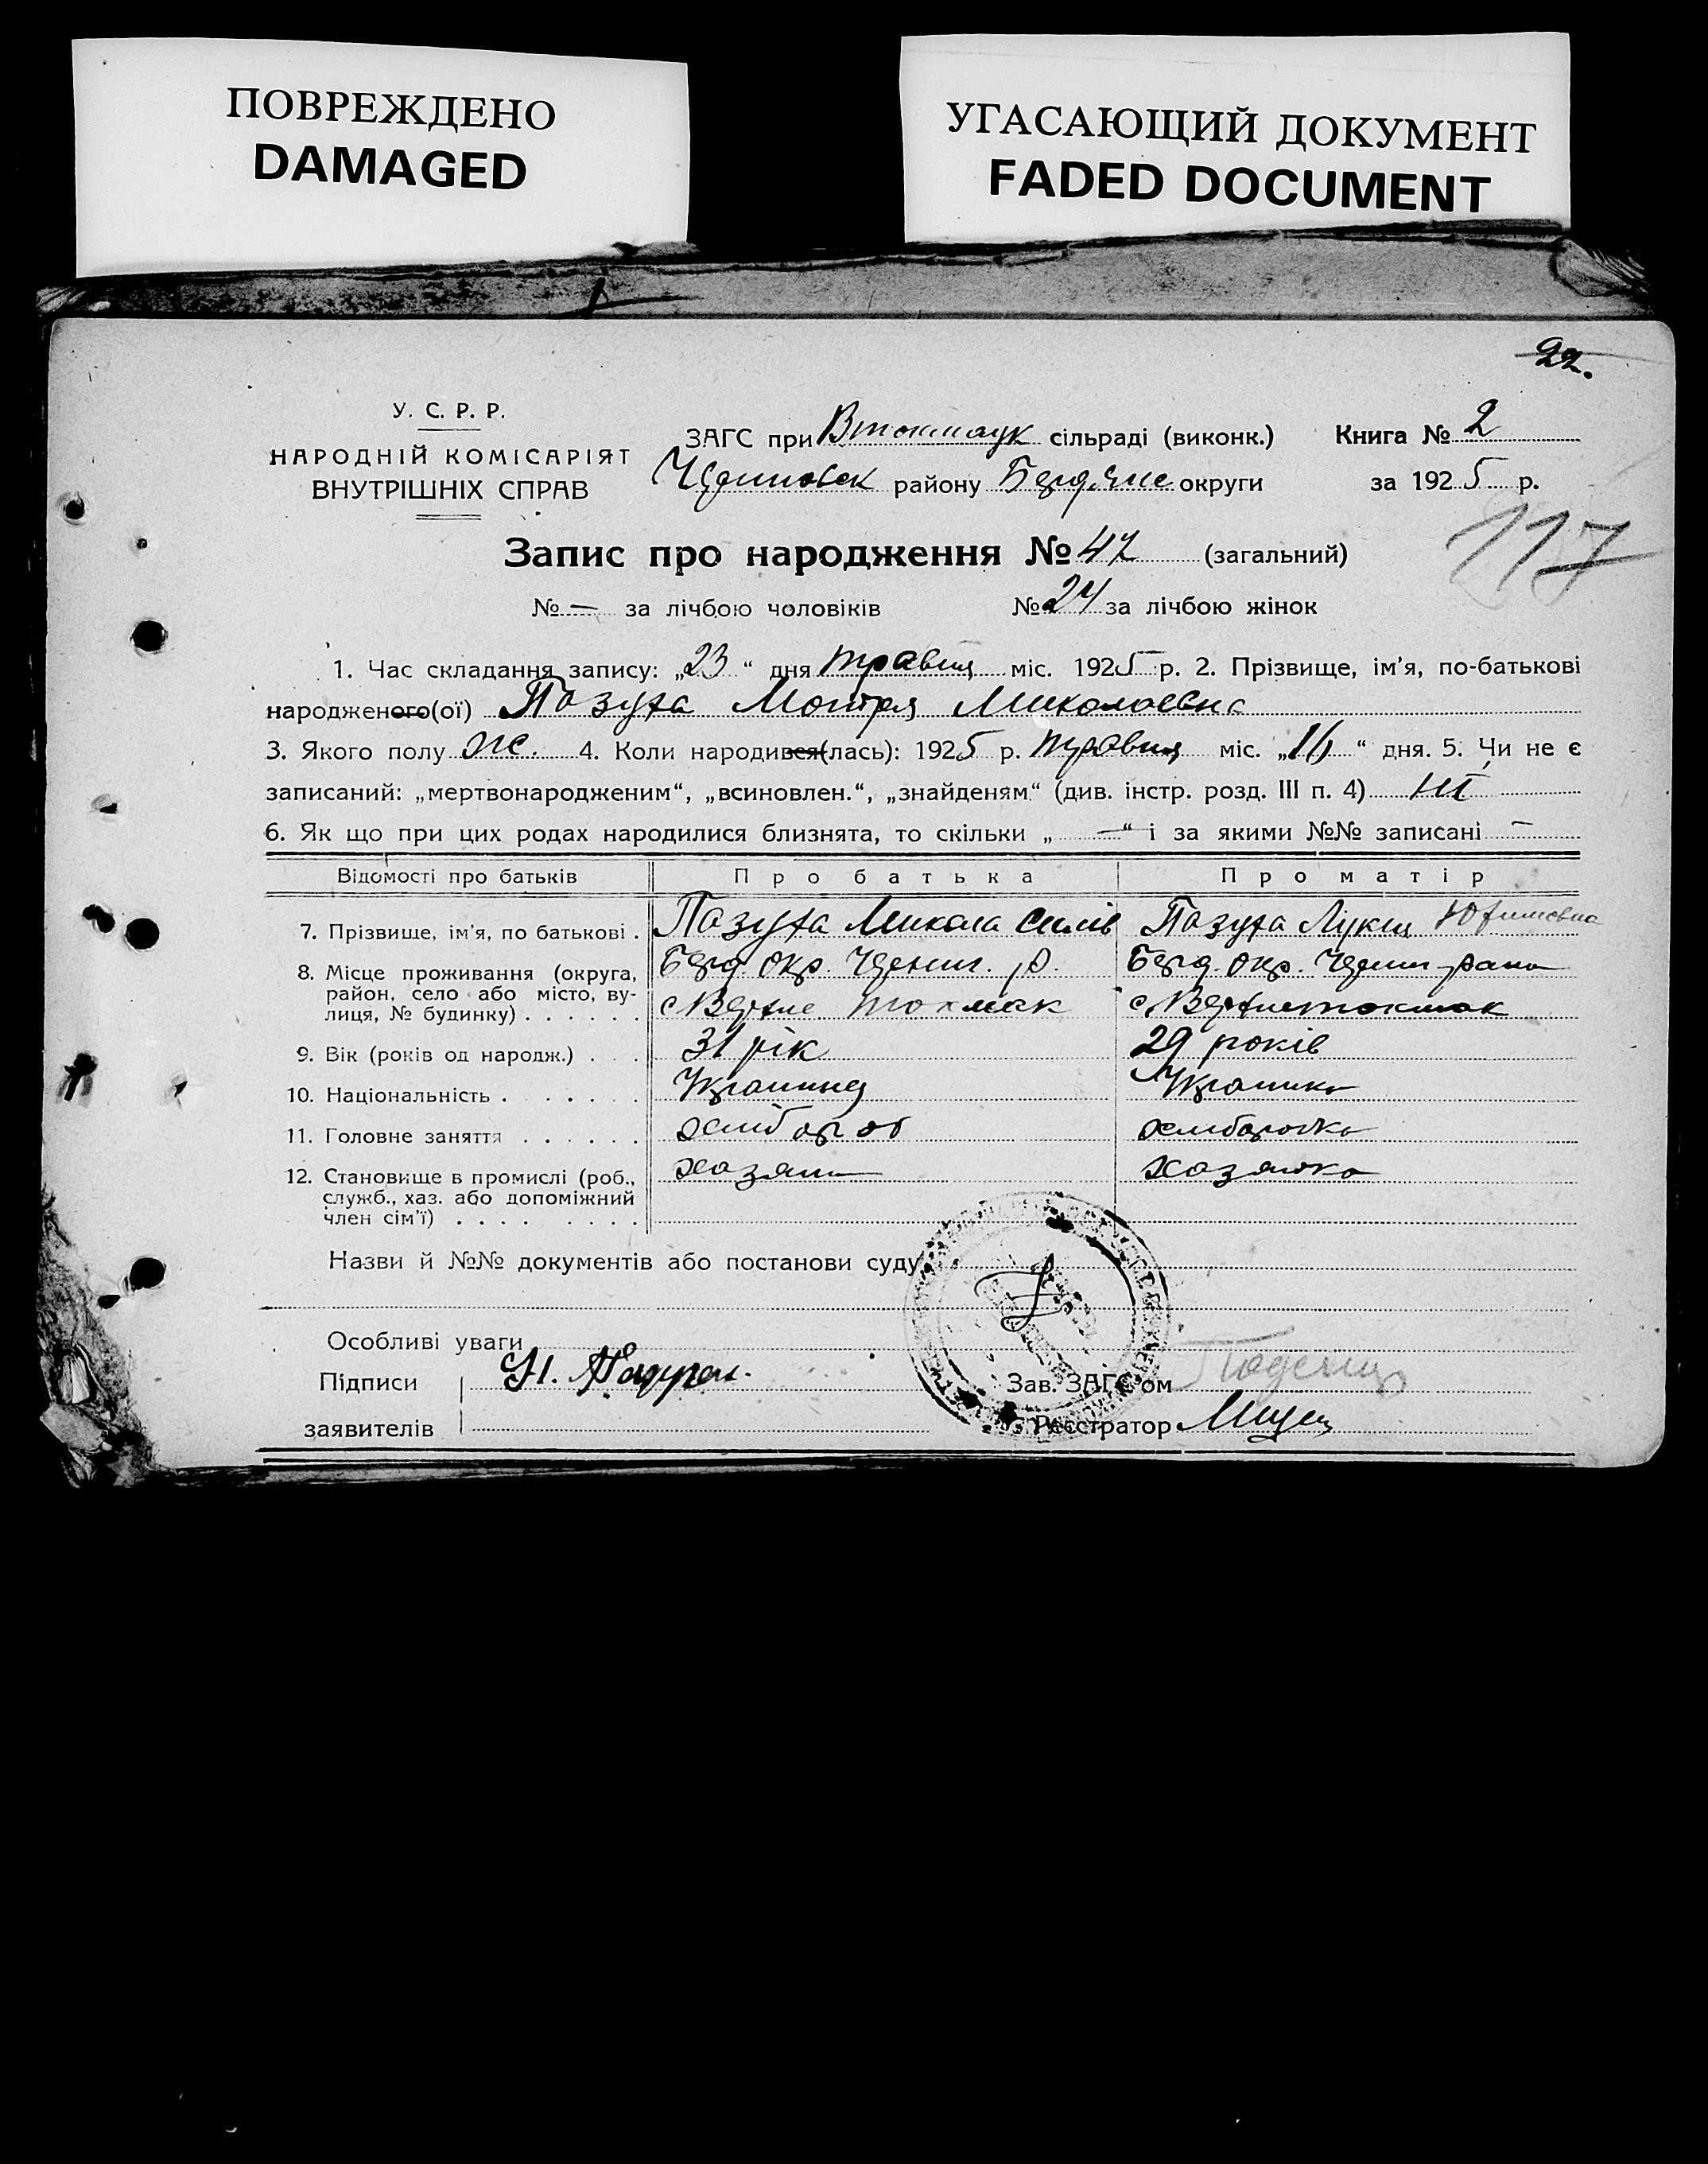 ПОВРЕЖДЕНО
DAMAGED
УГАСАЮЩИЙ ДОКУМЕНТ
FADED DOCUMENT
22.
У. С. Р. Р.
НАРОДНІЙ КОМІСАРІЯТ
ВНУТРІШНІХ СПРАВ
ЗАГС при сільраді (виконк.)
району округи
Книга № 2
за 1925 р.
117
Запис про народження № 47 (загальний)
№ — за лічбою чоловіків № 24 за лічбою жінок
1. Час складання запису: „23“ дня травня міс. 1925 р. 2. Прізвище, ім'я, по-батькові
народженого(ої) Пазуха Мотря Миколаевна
3. Якого полу ж. 4. Коли народився(лась): 1925 р. травня міс. „16“ дня. 5. Чи не є
записаний: „мертвонародженим“, „всиновлен.“, „знайденям“ (див. інстр. розд. III п. 4) ні
6. Як що при цих родах народилися близнята, то скільки „—“ і за якими №№ записані —
Відомості про батьків Про батька Про матір
7. Прізвище, ім'я, по батькові . Пазуха Микола Пазуха Лукия
8. Місце проживання (округа, район, село або місто, вулиця, № будинку) . . . . . . Берд. Окр. р. Берд. Окр.
с Верхне Токмак с Верхнетокмак
9. Вік (років од народж.) . . . 31 рік 29 років
10. Національність . . . . . . Украинец Украинка
11. Головне заняття . . . . . . хлібороб хлиборобка
12. Становище в промислі (роб., служб., хаз. або допоміжний член сім'ї) . . . . . . . . хазяин хазяйка
Назви й №№ документів або постанови суду
Особливі уваги
Підписи
заявителів
Зав. ЗАГС'ом
Реєстратор